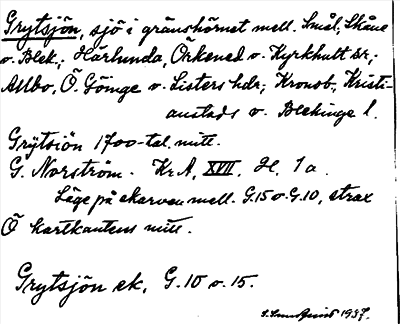 Grytsjön, sjö i gränshörnet mell. Smål., Skåne
o. Blek.; Härlunda, Örkened o. Kyrkhult sr;
Allbo, Ö. Göinge o. Listers hdr; Kronob., Kristi-
anstads o. Blekinge l.
Grÿtsiön 1700-tal. mitt.
G. Norström. Kr A, XVII. H. 1 a.
Läge på skarven mell. G.15 o. G.10, strax
Ö kartkantens mitt.
Grytsjön ek. G.10 o. 15.
1937.